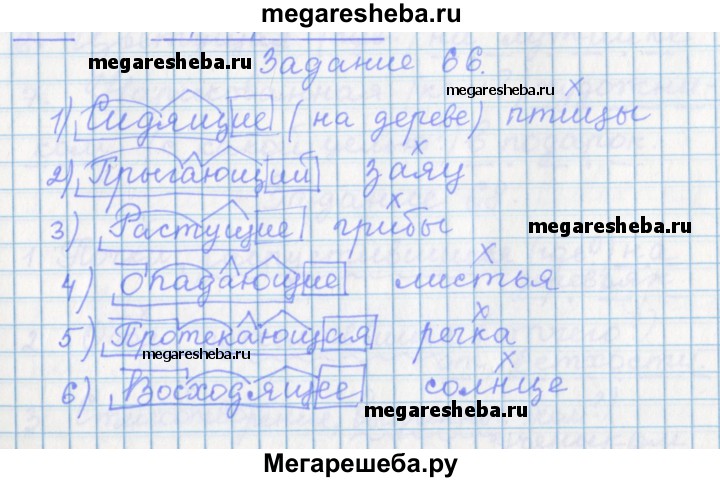 megaresheba.ru
megaresheba.ru Задание 66.
megaresheba.ru
1) Сидящие (на дереве) птицы
2) Прыгающий заяц
3) Растущие грибы
megaresheba.ru
4) Опадающие листья
5) Протекающая речка
megaresheba.ru
6) Восходящее солнце
megaresheba.ru
Мегарешеба.ру